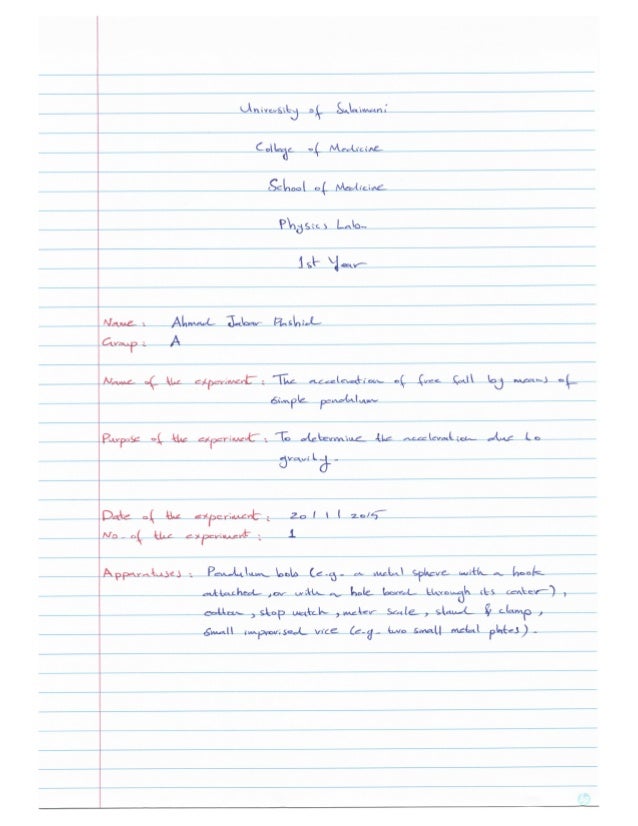 University of Sulaimani
College of Medicine
School of Medicine
Physics Lab.
1st Year
Name: Ahmad Jabar Rashid
Group: A
Name of the experiment: The acceleration of free fall by means of
simple pendulum
Purpose of the experiment: To determine the acceleration due to
gravity.
Date of the experiment: 20/1/2015
No. of the experiment: 1
Apparatuses: Pendulum bob (e.g. a metal sphere with a hook
attached, or with a hole bored through its center),
cotton, stop watch, meter scale, stand & clamp,
small improvised vice (e.g. two small metal plates).